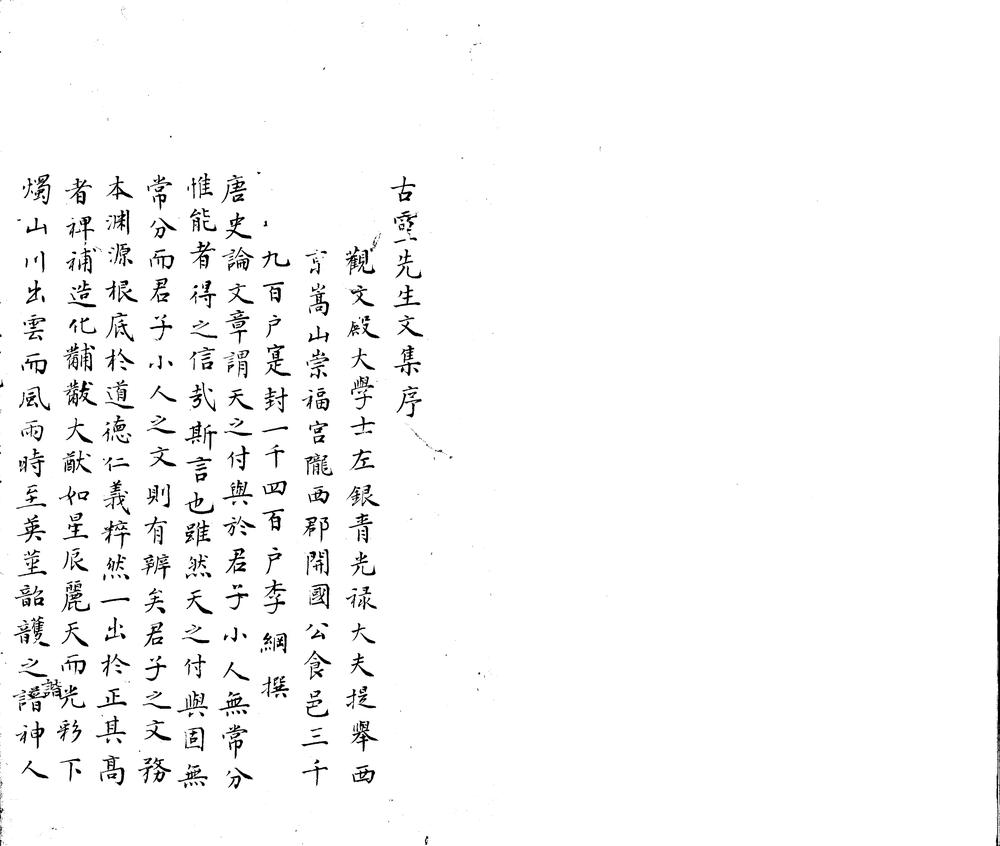 古靈先生文集序
觀文殿大學士左銀青光祿大夫提舉西
京嵩山崇福宮隴西郡開國公食邑三千
九百户寔封一千四百户李綱撰
唐史論文章謂天之付與於君子小人無常分
惟能者得之信㢤斯言也雖然天之付與固無
常分而君子小人之文則有辨矣君子之文務
本淵源根底於道德仁義粹然一出於正其高
者裨補造化黼黻大猷如星辰麗天而光彩下
燭山川出雲而風雨時至英莖韶頀之譜神人
諧